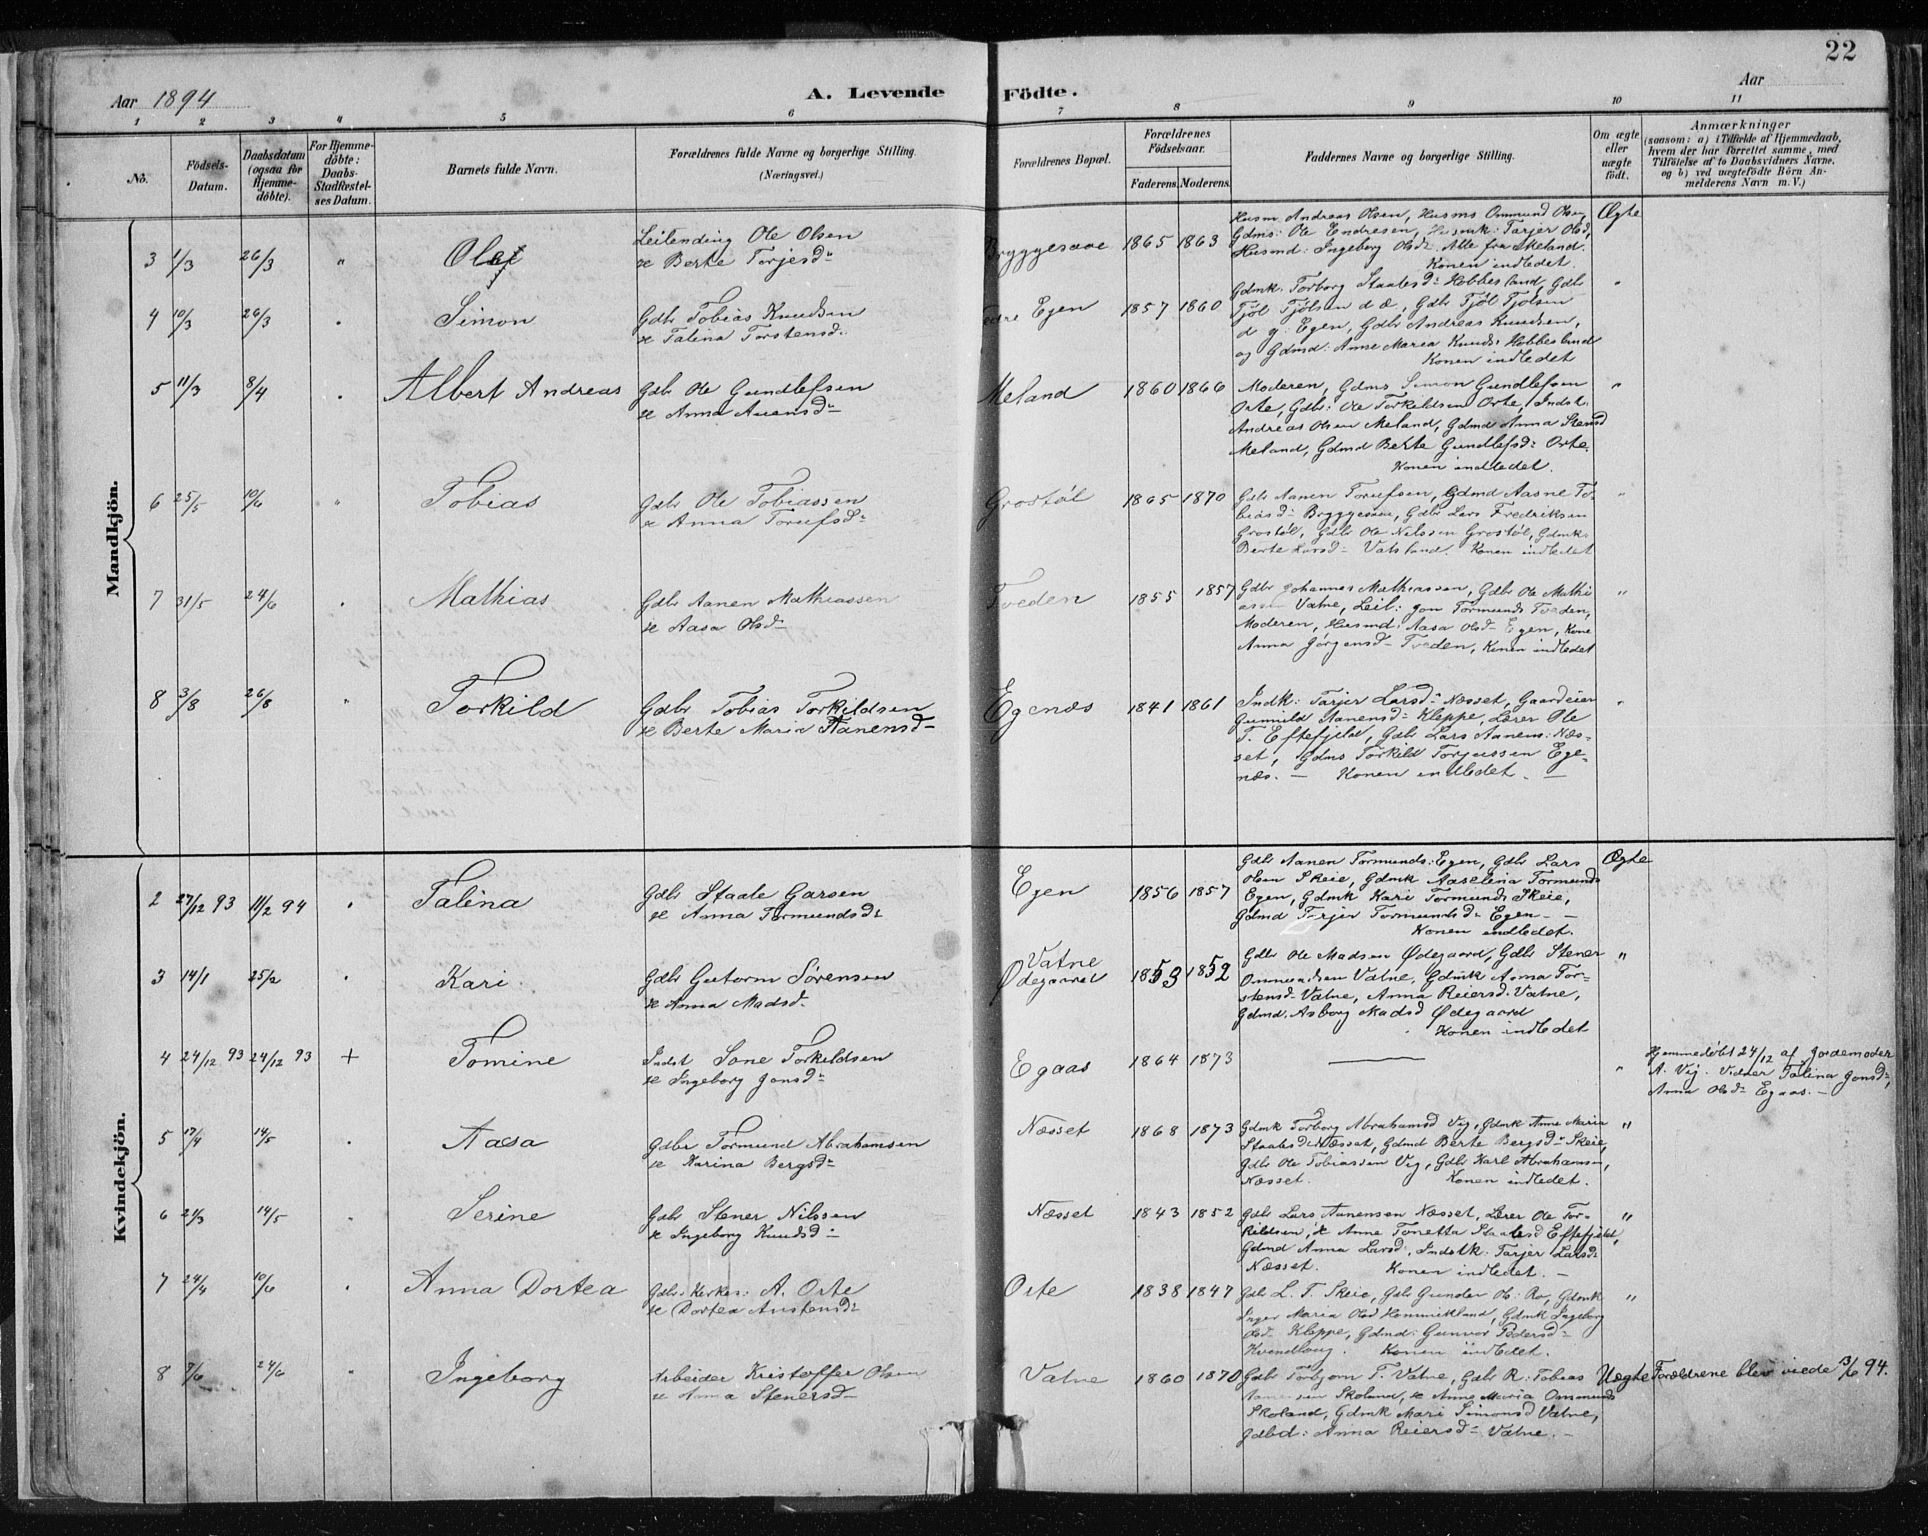 22
Aar 1894
A. Levende Födte.
Aar
1 2 3 4 5 6 7 8 9 10 11
No.
Födsels-Datum.
Daabsdatum (ogsaa for Hjemmedöbte).
For Hjemmedöbte: Daabs-Stadfæstelses Datum.
Barnets fulde Navn.
Forældrenes fulde Navne og borgerlige Stilling. (Næringsvei.)
Forældrenes Bopæl.
Forældrenes Födselsaar.
Faderens. Moderens.
Faddernes Navne og borgerlige Stilling.
Om ægte eller uægte födt.
Anmærkninger
(saasom: a) i Tilfælde af Hjemmedaab, hvem der har forrettet samme, med Tilföielse af to Daabsvidners Navne, og b) ved uægtefödte Börn Anmelderens Navn m. V.)
Mandkjön.
3 1/3 26/3 "
Leilending Ole Olsen
& Berte Torjesd:
Bryggesaae 1865 1863
Husm Andreas Olsen, Husms Ommund Olsen,
Gdms: Ole Endresen, Husmk: Tarjer Olsd,
Husmd: Ingeborg Olsd: Alle fra Skeland.
Konen indledet.
Ægte
4 10/3 26/3 "
Simon
Gdbr Tobias Knudsen
& Talina Torstensd:
Egen 1857 1860
Gdmk: Torborg Staalesd: Hobbesland, Gdbr
Tjöl Tjölsen d æ, Gdbr Tjöl Tjölsen
d y: Egen, Gdbr Andreas Knudsen,
og Gdmd: Anne Maria Knuds: Hobbesland
Konen indledet
"
5 11/3 8/4 "
Albert Andreas
Gdbr Ole Gundlefsen
& Anna Auensd:
Meland 1860 1866
Moderen, Gdms Simon Gundlefsen
Orte, Gdbr: Ole Torkildsen Orte, Indst:
Andreas Olsen Meland, Gdmd Anna Stensd
Meland, Gdmd Berte Gundlefsd: Orte.
Konen indledet.
"
6 25/5 10/6 "
Tobias
Gdbr Ole Tobiassen
& Anna Torufsd:
Grostöl 1865 1870
Gdbr Aanen Torufsen, Gdmd Aasne To-
biasd: Bryggesaae, Gdbr Lars Fredriksen
Grostöl, Gdbr Ole Nilssen Grostöl, Gdmk:
Berte Larsd: Vatsland. Konen indledet
"
7 31/5 24/6 "
Mathias
Gdbr Aanen Mathiassen
& Aasa Olsd:
Tveden 1855 1857
Gdbr Johannes Mathiassen, Gdbr Ole Mathi
assen Vatne, Leil: Jon Tormunds Tveden,
Moderen, Husmd: Aasa Olsd: Egen, Kone
Anna Jörgensd: Tveden, Konen indledet
"
8 3/8 26/8 "
Torkild
Gdbr Tobias Torkildsen
& Berte Maria Aanensd:
Egenæs 1841 1861
Indk: Tarjer Larsd: Næsset, Gaardeier
Gunnild Aanensd: Kleppe, Lærer Ole
T. Eftefjeld, Gdbr Lars Aanens: Næs-
set, Gdms Torkild Torjussen Ege-
næs. — Konen indledet. —
"
Kvindekjön.
2 27/12 93 11/2 94 "
Talina
Gdbr Staale Garsen
& Anna Tormundsd:
Egen 1856 1857
Gdbr Aanen Tormunds: Egen, Gdbr Lars
Olsen Skeie, Gdmk Aaselina Tormunds
Egen, Gdmk Kari Tormunds Skeie,
Gdmd Tarjer Tormundsd: Egen. —
Konen indledet.
Ægte
3 14/1 25/2 "
Kari
Gdbr Gutorm Sörensen
& Anna Madsd.
Vatne
Ödegaard 1853 1852
Gdbr Ole Madsen Ödegaard, Gdbr Stener
Ommundsen Vatne, Gdmk Anna Tor-
stensd: Vatne, Anna Reiersd. Vatne,
Gdmd. Asborg Madsd Ödegaard
Konen indledet
"
4 24/12 93 24/12 93 +
Tomine
Indst Sone Torkildsen
& Ingeborg Jonsd:
Egaas 1864 1873 —
"
Hjemmedöbt 24/12 af Jordemoder
A. Vig. Vidner Talina Jonsd:,
Anna Olsd: Egaas. —
5 17/4 14/5 "
Aasa
Gdbr Tormund Abrahamsen
& Karina Bergsd:
Næsset 1868 1873
Gdmk Torborg Abrahamsd Vig, Gdmk Anne Maria
Staalesd: Næsset, Gdmd Berte Bergsd: Skeie,
Gdbr Ole Tobiassen Vig, Gdbr Karl Abrahamsen,
Næsset. Konen indledet.
"
6 21/3 14/5 "
Serine
Gdbr Stener Nilssen
& Ingeborg Knudsd:
Næsset 1843 1852
Gdbr Lars Aanensen Næsset, Lærer Ole Tor-
kildsen, & Anne Tonetta Staalesd Eftefjeld,
Gdmd Anna Larsd:, Indstk: Tarjer Larsd:
Næsset. Konen indledet. —
"
7 24/4 10/6 "
Anna Dortea
Gdbr. Kirkes: A. Orte
& Dortea Austensd:
Orte 1838 1847
Gdbr L. T. Skeie, Gdbr Gunder Ols: Ro, Gdmk
Inger Maria Olsd Hommikland, Gdmk Ingeborg
Olsd: Kleppe, Gdmd: Gunvor Pedersd:
Konen indledet.
"
8 7/6 24/6 "
Ingeborg
Arbeider Kristoffer Olsen
& Anna Stenersd:
Vatne 1860 1870
Gdbr Torbjorn T. Vatne, Gdbr R. Tobias
Aanensen Skoland, & Anne Maria Ommunds
Skoland, Gdmk Mari Simonsd Vatne,
Gdbd: Anna Reiersd: Vatne. —
Uægte
Forældrene blev viede 3/6 94.